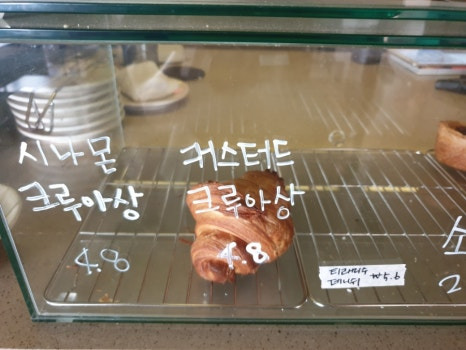 시나몬
크루아상
4.8
커스터드
크루아상
4.8
티라미수 ₩5.6
페니쉬
소
2